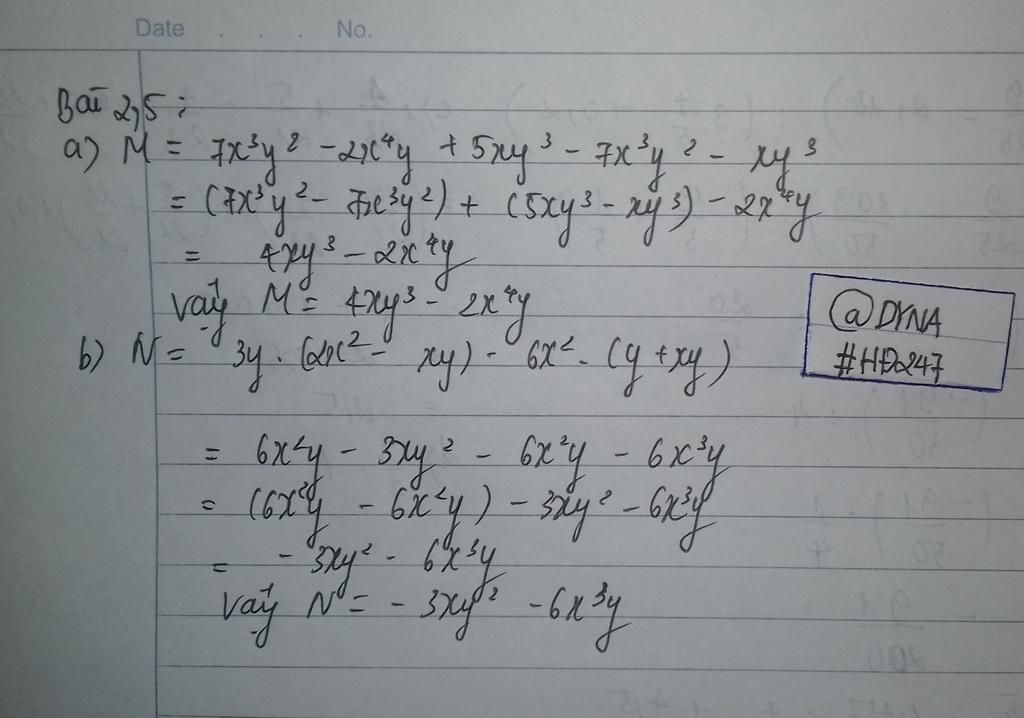 Date . . . No.
Bài 2,5 :
a) M = 7x³y² - 2x⁴y + 5xy³ - 7x³y² - xy³
= (7x³y² - 7x³y²) + (5xy³ - xy³) - 2x⁴y
= 4xy³ - 2x⁴y
Vậy M = 4xy³ - 2x⁴y
@DYNA
#HĐ247
b) N = 3y . (2x² - xy) - 6x² . (y + xy)
= 6x²y - 3xy² - 6x²y - 6x³y
= (6x²y - 6x²y) - 3xy² - 6x³y
= - 3xy² - 6x³y
Vậy N = - 3xy² - 6x³y